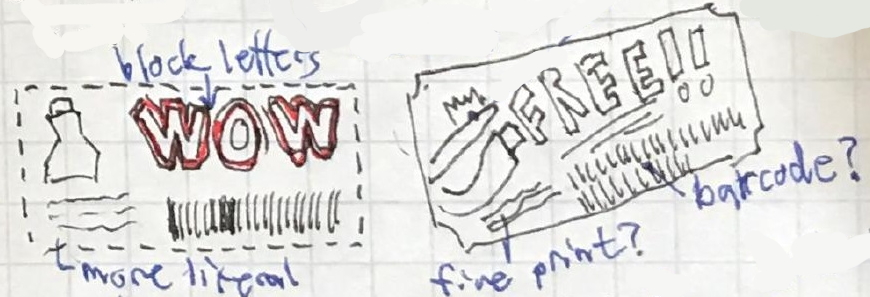 block letters
WOW
more literal
FREE!!
barcode?
fine print?